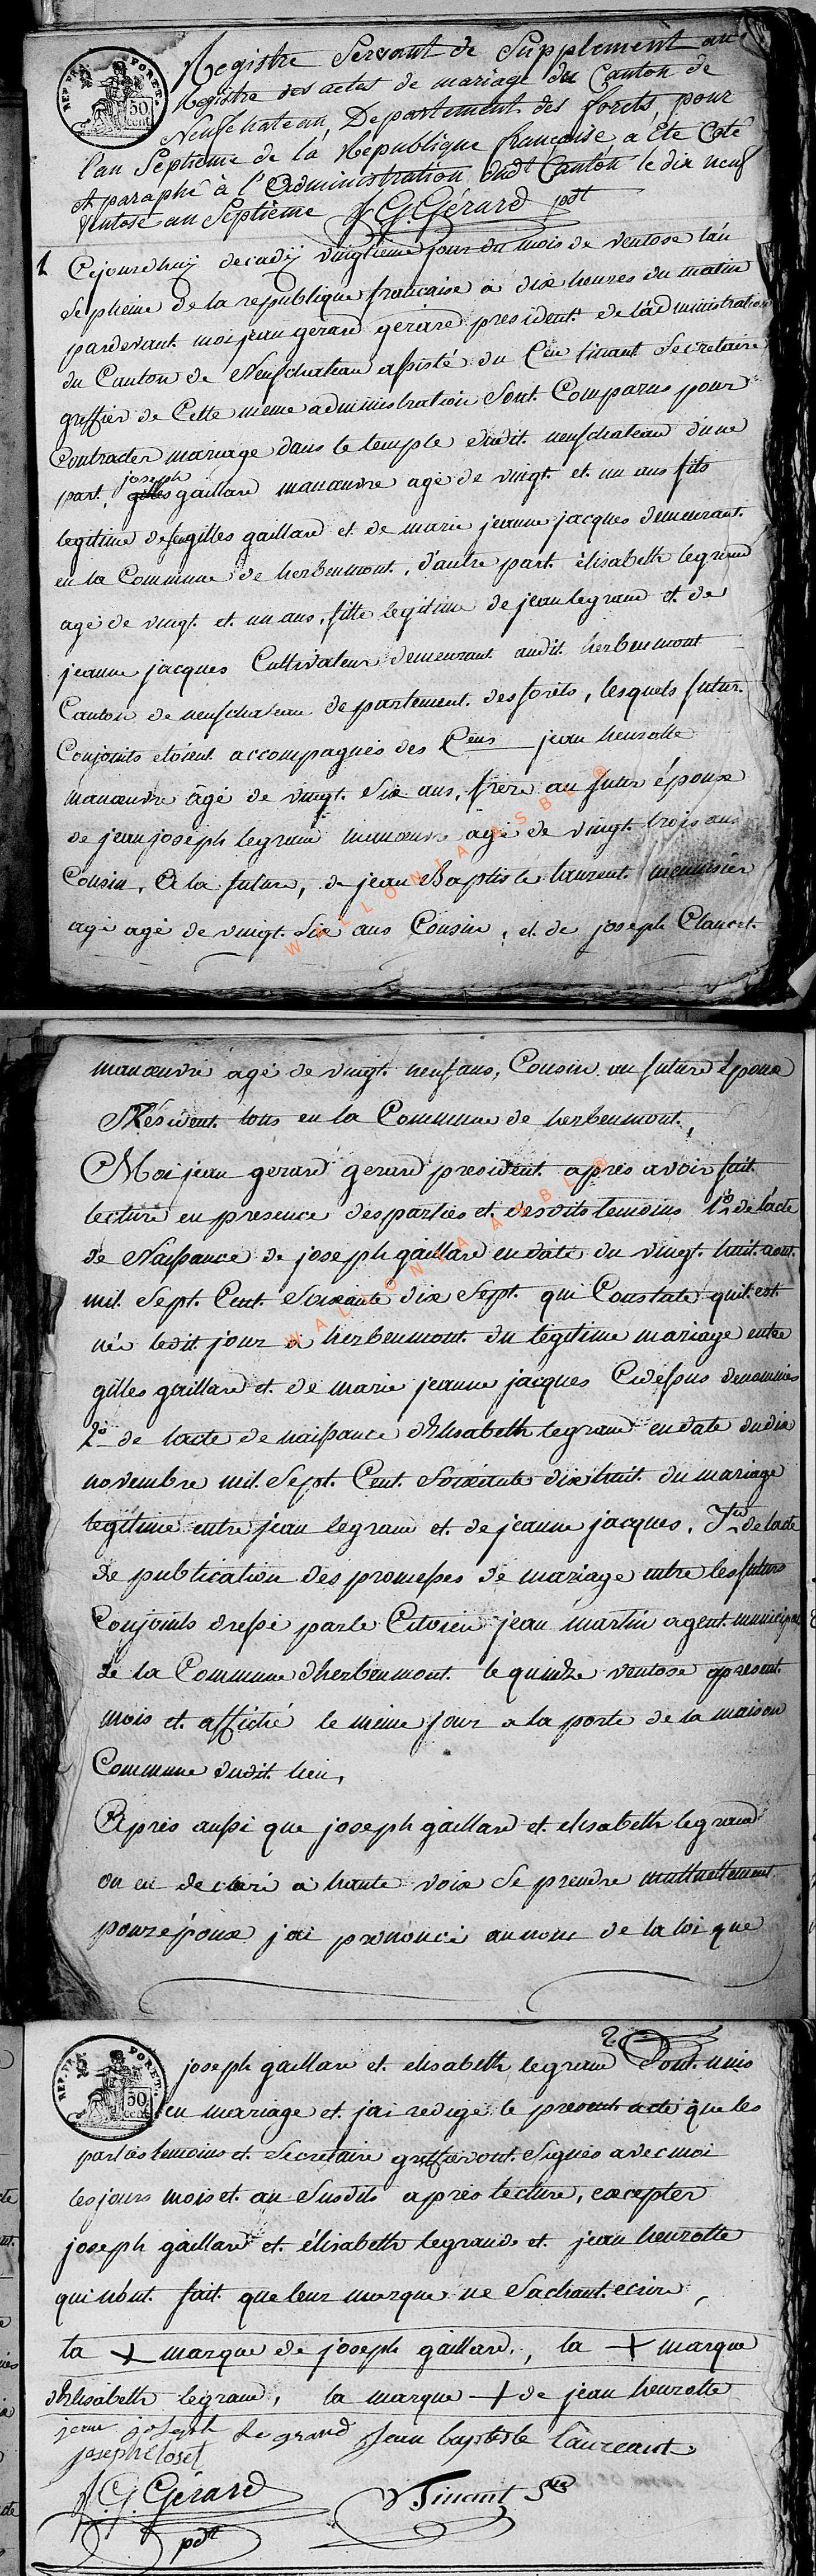 REP. FRA. FORET.
50 cent.
Registre Servant de Supplement au
Registre des actes de mariage du Canton de
Neufchateau, Departement des forets, pour
l'an Septieme de la Republique francaise a Eté Coté
et paraphé à l'Administration dudt Canton le dix neuf
Ventose an Septième J G Gérard pdt
1 Cejourdhuij decadij vingtieme jour du mois de ventose l'an
Septieme de la republique francaise a dix heures du matin
pardevant moi jean gerard gerard president de l'administration
du Canton de Neufchateau assisté du Cen tinant Secretaire
greffier de Cette meme administration Sont Comparus pour
Contracter mariage dans le temple dudit neufchateau d'une
joseph
part, gilles gaillard manœuvre agé de vingt et un ans fils
legitime de feu gilles gaillard et de marie jeanne jacques demeurant
en la Commune de herbeumont, d'autre part élisabeth legrand
agé de vingt et un ans, fille legitime de jean legrand et de
jeanne jacques Cultivateur demeurant audit herbeumont
Canton de neufchateau departement des forêts, lesquels futur
Conjoints etoient accompagnés des Cens jean heurotte
manœuvre âgé de vingt Six ans, frere au futur époux
de jean joseph legrand manœuvre agé de vingt trois ans
Cousin, a la future, de jean Baptiste laurent menuisier
agé agé de vingt Six ans Cousin, et de joseph Clauset
WALLONIA ASBL ®
manœuvre agé de vingt neuf ans, Cousin au future Epoux
Résident tous en la Commune de herbeumont,
Moi jean gerard gerard president apres avoir fait
lecture en presence des parties et desdits temoins 1o de l'acte
de Naissance de joseph gaillard en date du vingt huit aout
mil Sept Cent Soixante dix Sept qui Constate quil est
né ledit jour a herbeumont du légitime mariage entre
gilles gaillard et de marie jeanne jacques Cidessus denommés
2o de lacte de naissance d'Elisabeth legrand en date du dix
novembre mil Sept Cent Soixante dix huit du mariage
legitime entre jean legrand et de jeanne jacques, de lacte
de publication des promesses de mariage entre les futurs
Conjoints dressé par le Citoien jean martin agent municipal
de la Commune d'herbeumont le quinze ventose present
mois et affiché le meme jour a la porte de la maison
Commune dudit lieu,
Après aussi que joseph gaillard et elisabeth legrand
on eu declaré a haute voix Se prendre muttuellement
pour époux j'ai prononcé au nom de la loi que
WALLONIA ASBL ®
2
REP. FRA. FORET.
50 cent.
joseph gaillard et elisabeth legrand Sont unis
en mariage et jai redigé le present acte que les
parties temoins et Secretaire greffier ont Signés avec moi
les jours mois et an Susdits apres lecture, excepter
joseph gaillard et élisabeth legrand et jean heurotte
qui n'ont fait que leur marque ne Sachant ecrire,
la + marque de joseph gaillard, la + marque
d'Elisabeth legrand, la marque + de jean heurotte
jean joseph Le grand Jean baptiste Laureant
joseph Closet
J. G. Gérard Tinant Sre
pdt